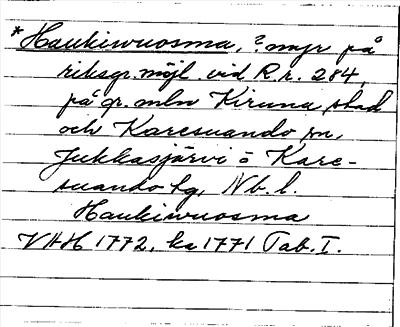 *Haukiwuosma, ? myr på
riksgr. möjl. vid R.r. 284,
på gr. mln Kiruna stad
och Karesuando sn,
Jukkasjärvi o Kare-
suando lg, Nb. l.
Haukiwuosma
VAH 1772, ka 1771 Tab. I.